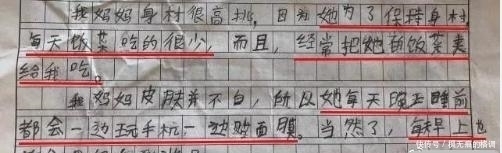 我妈妈身材很高挑。因为她为了保持身材
每天饭菜吃的很少，而且，经常把她的饭菜夹
给我吃。
我妈妈皮肤并不白，所以她每天晚上睡前
都会一边玩手机一边贴面膜。当然了，每早上也
快传号/